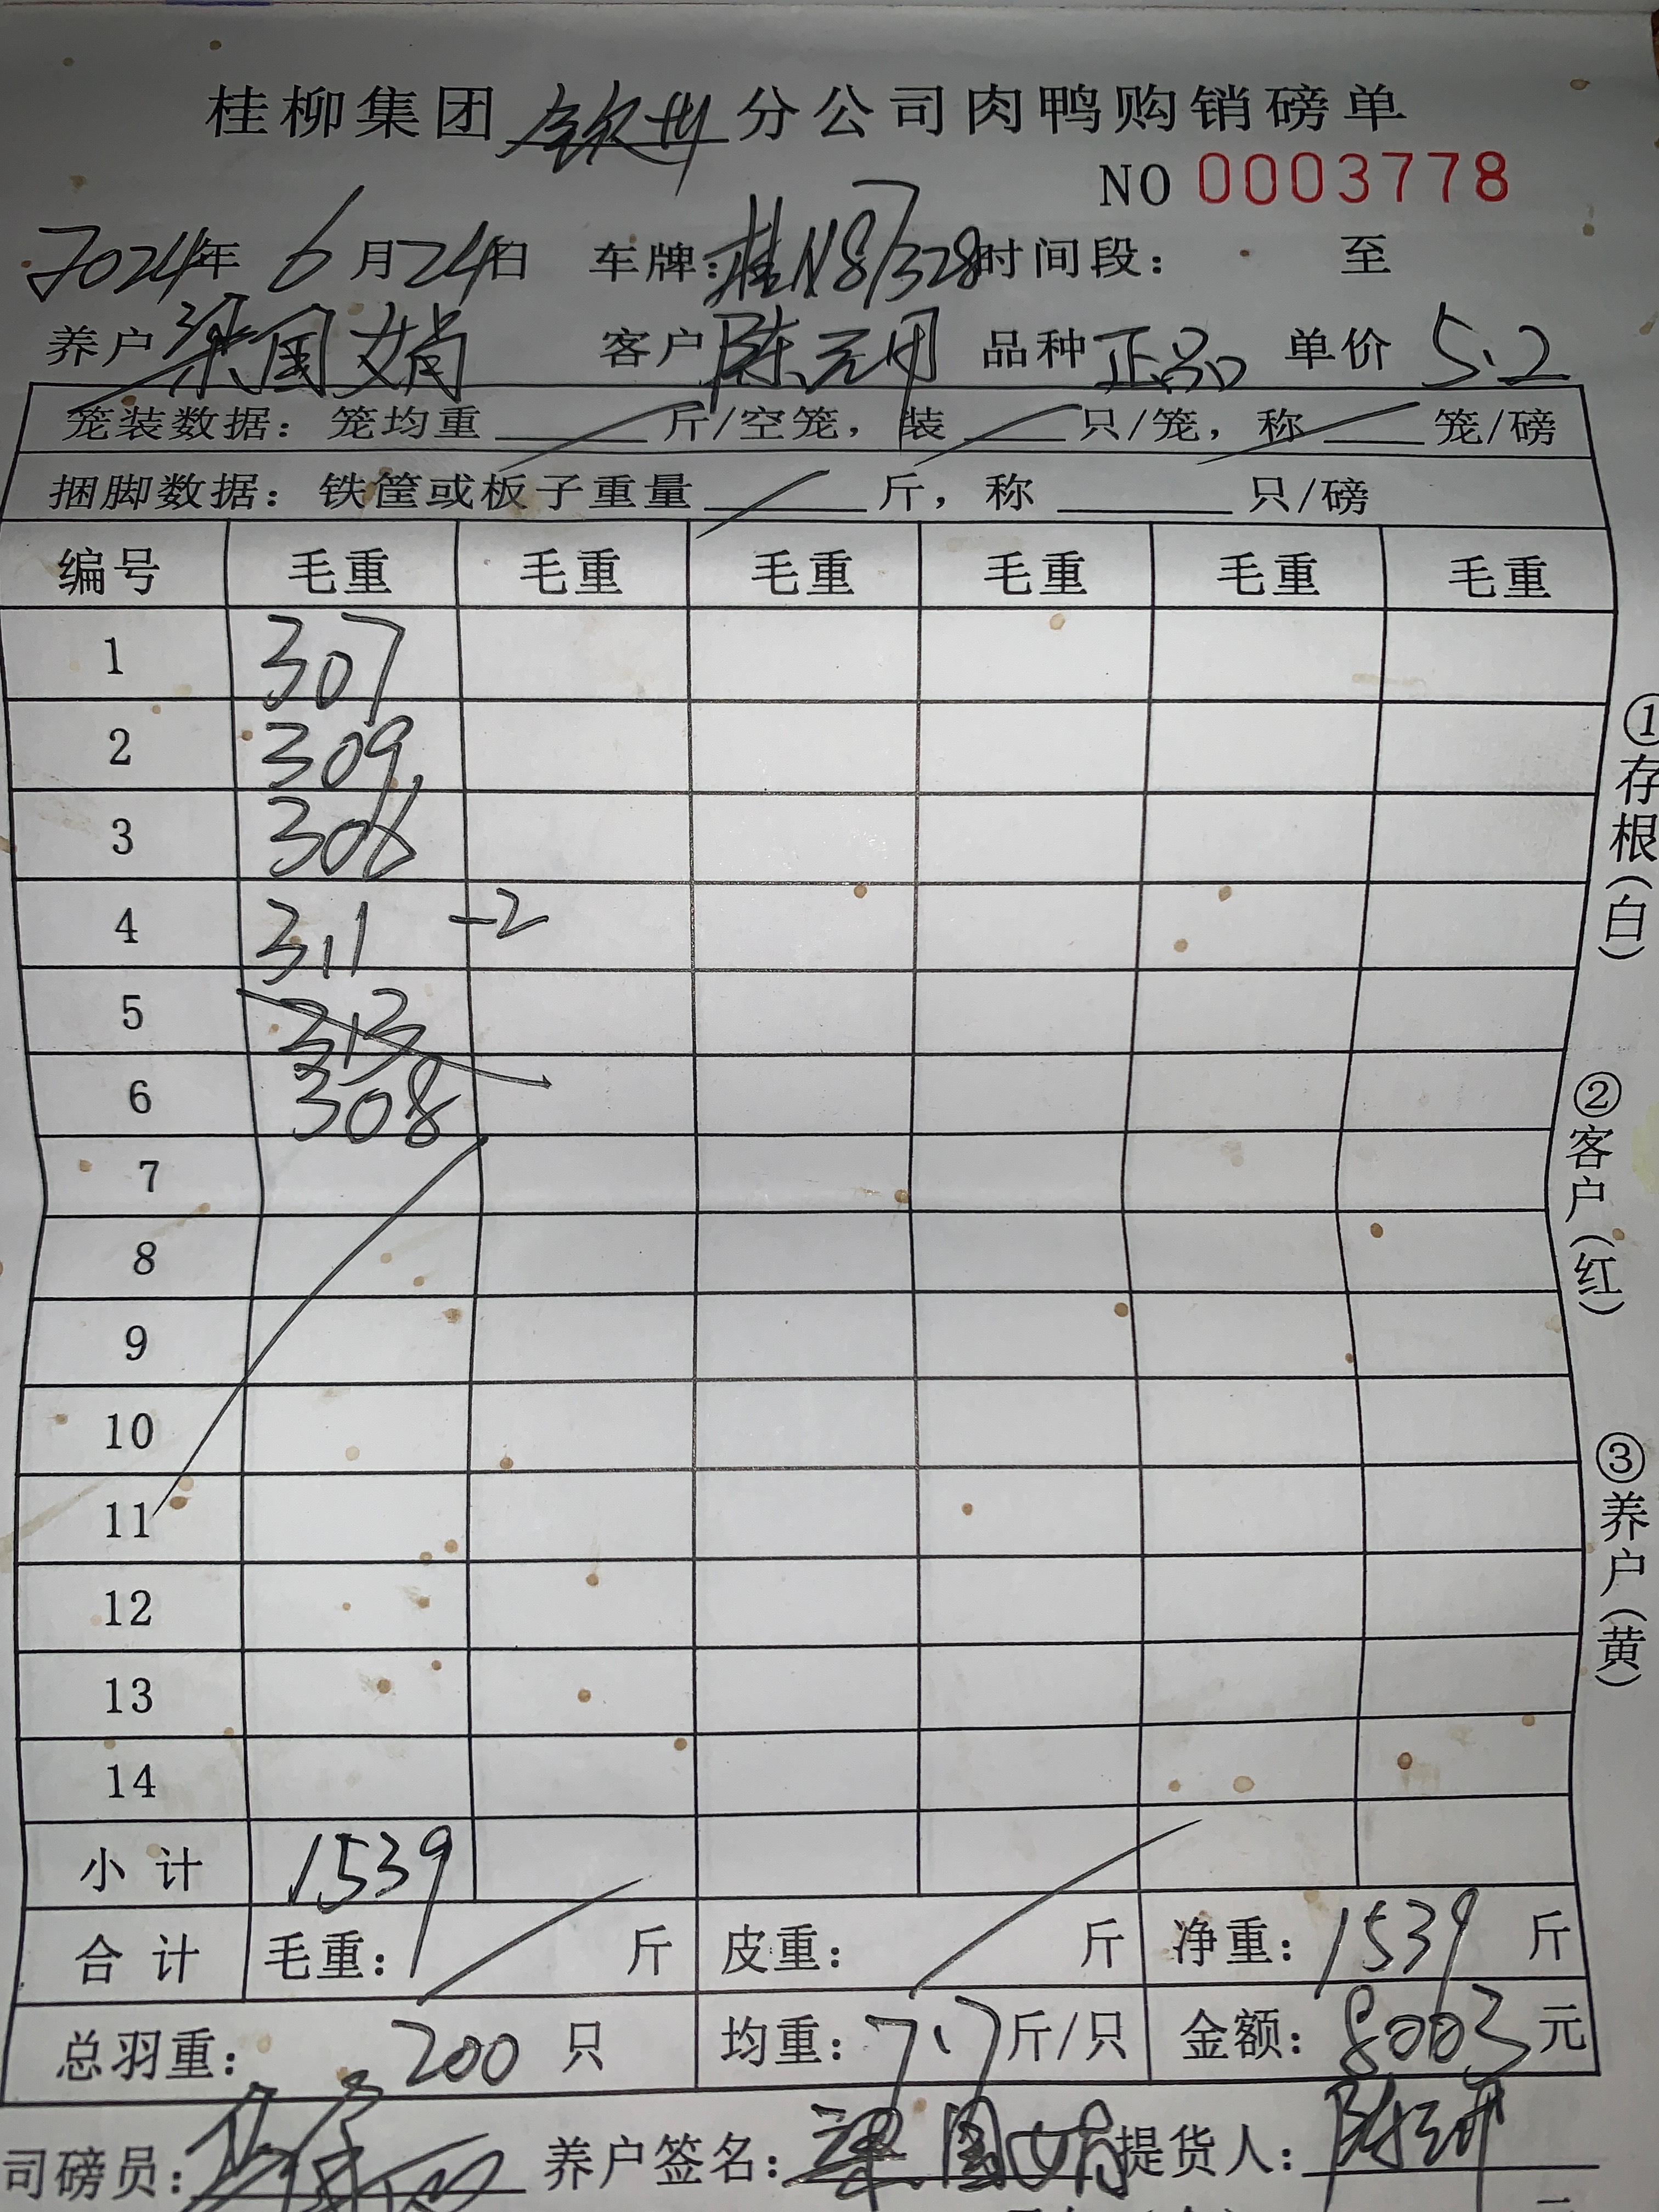 桂柳集团 钦州 分公司肉鸭购销磅单
NO 0003778
2024年 6月24日 车牌:桂N87328 时间段: 至
养户 梁国娟 客户 陈元用 品种 正品 单价 5.2
笼装数据: 笼均重 斤/空笼, 装 只/笼, 称 笼/磅
捆脚数据: 铁筐或板子重量 斤, 称 只/磅
编号 毛重 毛重 毛重 毛重 毛重 毛重
1 307
2 309
3 306
4 311 -2
5 313
6 308
7
8
9
10
11
12
13
14
小计 1539
合计 毛重: 斤 皮重: 斤 净重: 1539 斤
总羽重: 200 只 均重: 7.7 斤/只 金额: 8003 元
司磅员: 养户签名: 梁国娟 提货人:
①存根(白)
②客户(红)
③养户(黄)